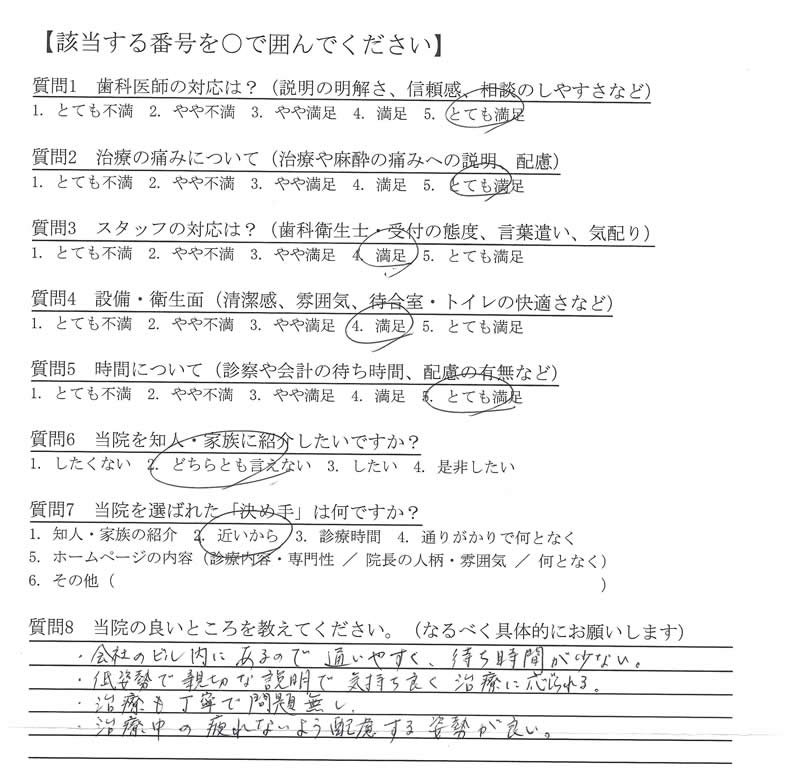 【該当する番号を○で囲んでください】
質問1 歯科医師の対応は？（説明の明解さ、信頼感、相談のしやすさなど）
1. とても不満 2. やや不満 3. やや満足 4. 満足 5. とても満足
質問2 治療の痛みについて（治療や麻酔の痛みへの説明、配慮）
1. とても不満 2. やや不満 3. やや満足 4. 満足 5. とても満足
質問3 スタッフの対応は？（歯科衛生士・受付の態度、言葉遣い、気配り）
1. とても不満 2. やや不満 3. やや満足 4. 満足 5. とても満足
質問4 設備・衛生面（清潔感、雰囲気、待合室・トイレの快適さなど）
1. とても不満 2. やや不満 3. やや満足 4. 満足 5. とても満足
質問5 時間について（診察や会計の待ち時間、配慮の有無など）
1. とても不満 2. やや不満 3. やや満足 4. 満足 5. とても満足
質問6 当院を知人・家族に紹介したいですか？
1. したくない 2. どちらとも言えない 3. したい 4. 是非したい
質問7 当院を選ばれた「決め手」は何ですか？
1. 知人・家族の紹介 2. 近いから 3. 診療時間 4. 通りがかりで何となく
5. ホームページの内容（診療内容・専門性 ／ 院長の人柄・雰囲気 ／ 何となく）
6. その他（ ）
質問8 当院の良いところを教えてください。（なるべく具体的にお願いします）
・会社のビル内にあるので通いやすく、待ち時間が少ない。
・低姿勢で親切な説明で気持ち良く治療に応じられる。
・治療も丁寧で問題無し。
・治療中の疲れないよう配慮する姿勢が良い。